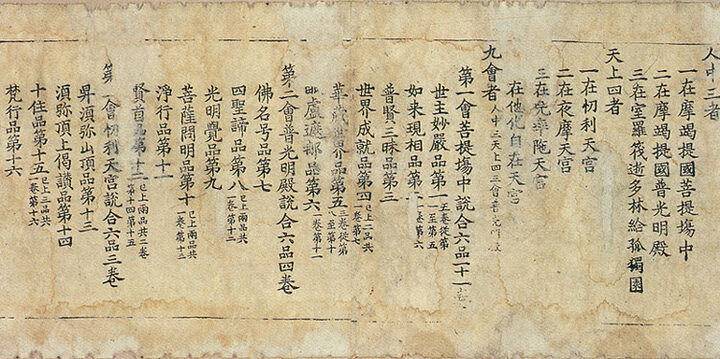 人中三者
一在摩竭提國菩提場中
二在摩竭提國普光明殿
三在室羅筏逝多林給孤獨園
天上四者
一在忉利天宮
二在夜摩天宮
三在兜率陁天宮
在他化自在天宮
九會者 人中三天上四三會普光明殿
第一會菩提場中說合六品十一卷
世主妙嚴品第一 一至第五
如來現相品第 一卷第六
普賢三昧品第三
世界成就品第四 已上二品共一卷第七
華藏世界品第五 三卷從第八至第十
毗盧遮那品第六 一卷第十一
第二會普光明殿說合六品四卷
佛名号品第七
四聖諦品第八 已上兩品共一卷第十二
光明覺品第九
菩薩問明品第十 已上兩品共一卷第十三
淨行品第十一
賢首品第十二 已上兩品共二卷第十四第十五
第 會忉利天宮說合六品三卷
昇須弥山頂品第十三
須弥頂上偈讚品第十四
十住品第十五 已上三品共一卷第十六
梵行品第十六